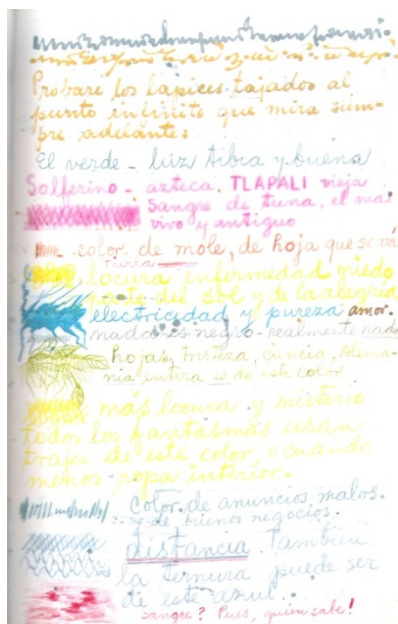 Probare los lapices tajados al
punto infinito que mira siem-
pre adelante:
El verde - luz tibia y buena
Solferino - azteca. TLAPALI vieja
Sangre de tuna, el mas
vivo y antiguo
color de mole, de hoja que se vá
tierra
locura enfermedad miedo
parte del sol y de la alegria
electricidad y pureza amor.
nada es negro - realmente nada
hojas, tristeza, ciencia, Alema-
nia entera es de este color
más locura y misterio
todos los fantasmas usan
trajes de este color, o cuando
menos ropa interior.
color de anuncios malos.
de buenos negocios.
distancia. Tambien
la ternura puede ser
de este azul.
sangre? Pues, quien sabe!